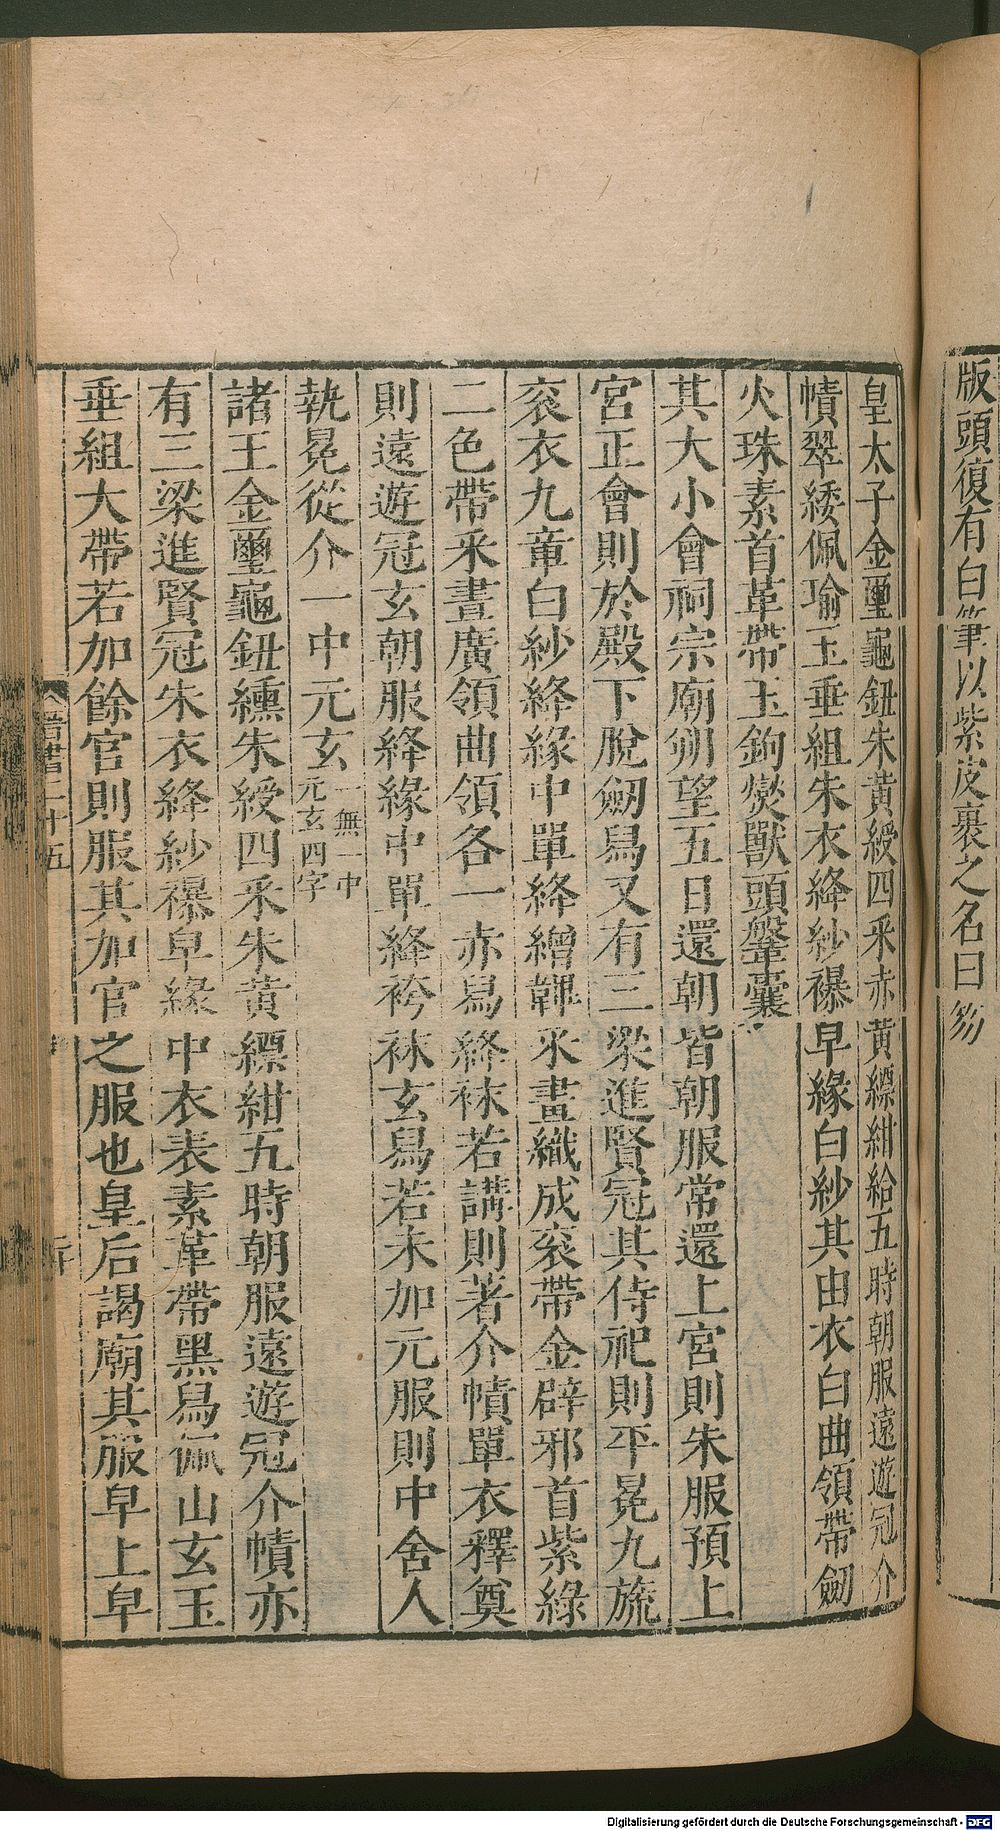 版頭復有白筆以紫皮裹之名曰笏
皇太子金璽龜鈕朱黃綬四釆赤黃縹紺給五時朝服遠遊冠介
幘翠緌佩瑜玉垂組朱衣絳紗襮皁緣白紗其由衣白曲領帶劒
火珠素首革帶玉鉤燮獸頭鞶囊
其大小會祠宗廟朔望五日還朝皆朝服常還上宮則朱服預上
宮正會則於殿下脫劒舃又有三梁進賢冠其侍祀則平冕九旒
衮衣九章白紗絳緣中單絳繒韠釆畫織成衮帶金辟邪首紫綠
二色帶釆畫廣領曲領各一赤舃絳袜若講則著介幘單衣釋奠
則遠遊冠玄朝服絳緣中單絳袴袜玄舃若未加元服則中舍人
執冕從介一中元玄一無一中元玄四字
諸王金璽龜鈕纁朱綬四釆朱黃縹紺五時朝服遠遊冠介幘亦
有三梁進賢冠朱衣絳紗襮皁緣中衣表素革帶黑舃佩山玄玉
垂組大帶若加餘官則服其加官之服也皇后謁廟其服皁上皁
晋書二十五